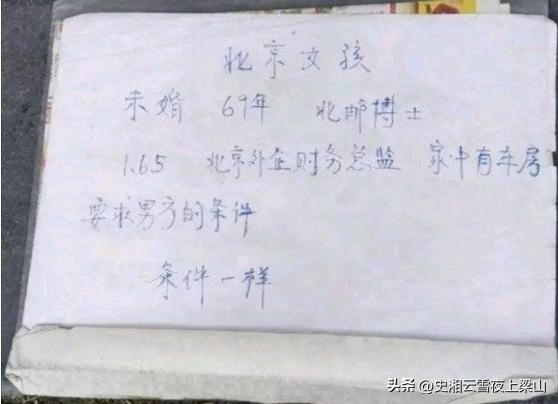 北京女孩
未婚 69年 北邮博士
1.65 北京外企财务总监 家中有车房
要求男方的条件
条件一样
头条 @史湘云雪夜上梁山